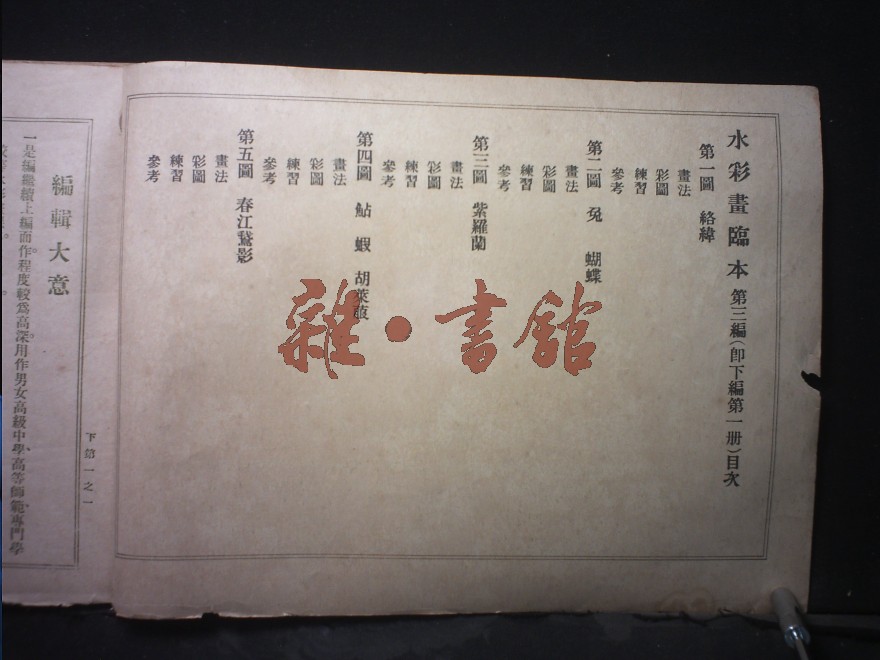 水彩畫臨本 第三編(卽下編第一册)目次
第一圖 絡緯
畫法
彩圖
練習
參考
第二圖 兔 蝴蝶
畫法
彩圖
練習
參考
第三圖 紫羅蘭
畫法
彩圖
練習
參考
第四圖 鮎 蝦 胡萊菔
畫法
彩圖
練習
參考
第五圖 春江鵞影
畫法
彩圖
練習
參考
雜·書館
下第一之一
編輯大意
一 是編繼續上編而作程度較爲高深用作男女高級中學、高等師範專門學